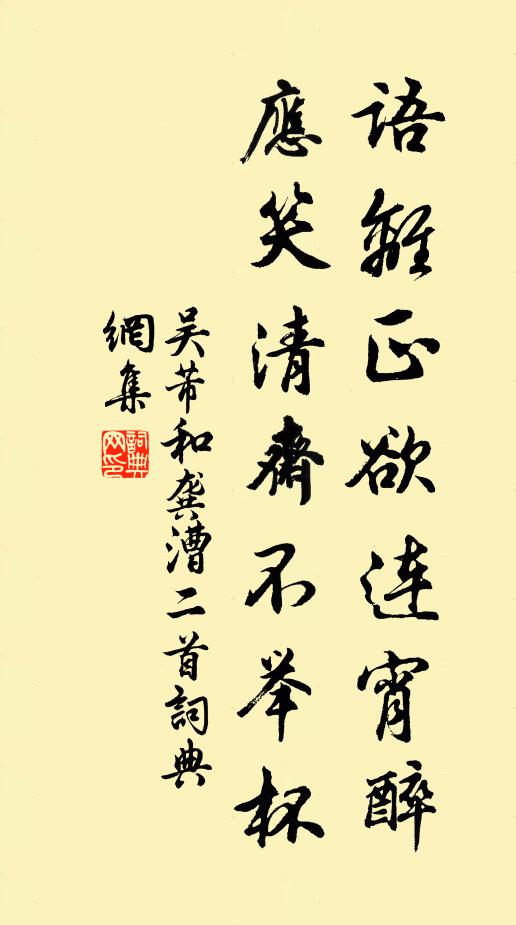 語離正欲連宵醉
應笑清齋不举杯
吴芾和龚漕二首詞典
網集
詞典網印